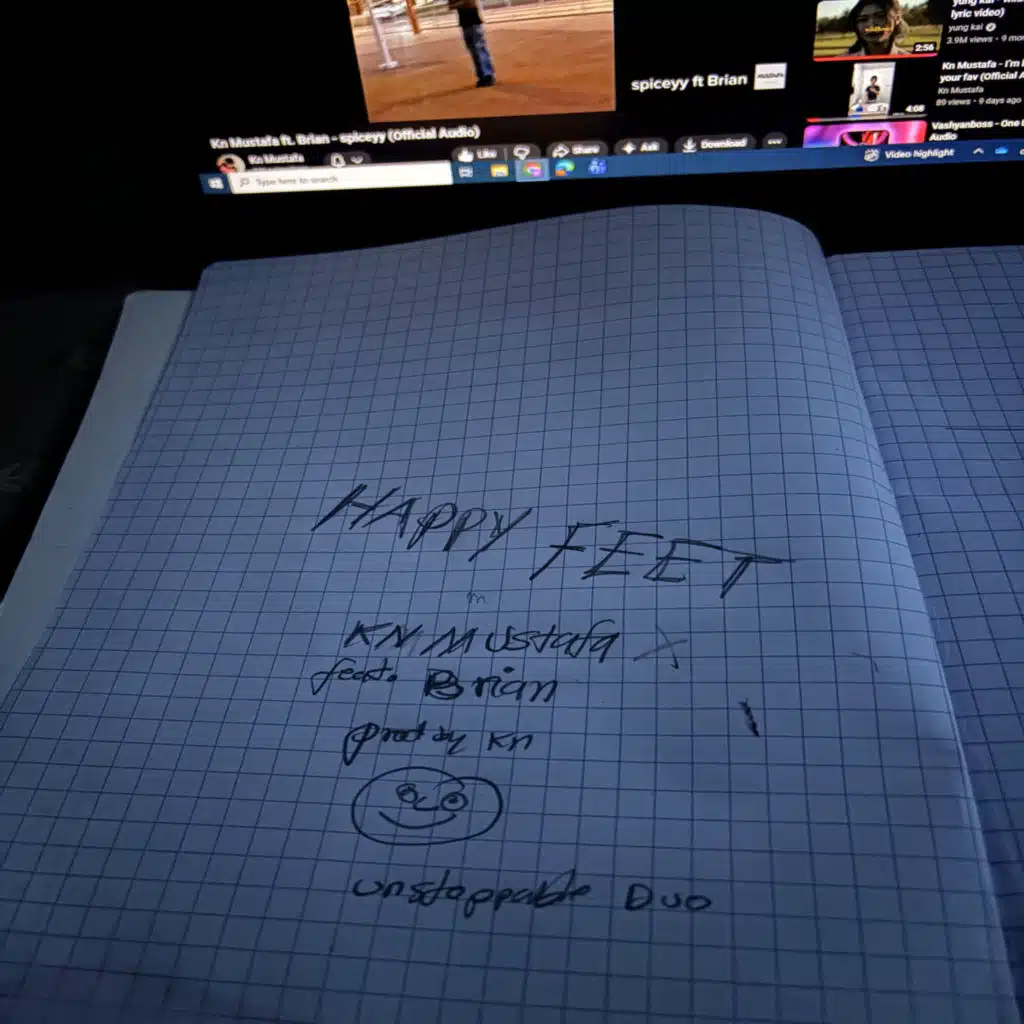 yung kai - wild
lyric video)
yung kai
3.9M views • 9 mo
2:56
Kn Mustafa - I'm
your fav (Official A
Kn Mustafa
89 views • 9 days ago
4:08
Vashyanboss - One
Audio
spiceyy ft Brian
Kn Mustafa ft. Brian - spiceyy (Official Audio)
Kn Mustafa
Like
Share
Ask
Download
Type here to search
Video highlight
HAPPY FEET
m
KN Mustafa X
feat. Brian
prod by Kn
unstoppable Duo